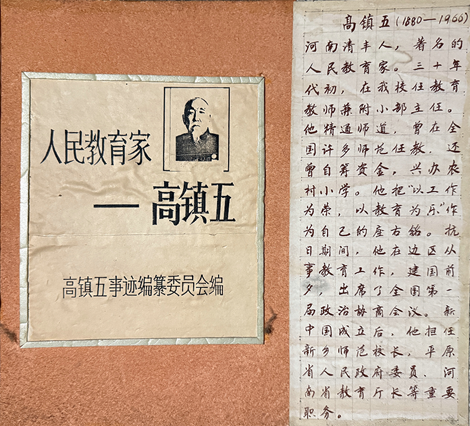 人民教育家
— 高镇五
高镇五事迹编纂委员会编
高镇五(1880—1966)
河南清丰人，著名的
人民教育家。三十年
代初，在我校任教育
教师兼附小部主任。
他精通师道，曾在全
国许多师范任教，还
曾自筹资金，兴办农
村小学。他把"以工作
为荣，以教育为乐"作
为自己的座右铭。抗
日期间，他在边区从
事教育工作，建国前
夕，出席了全国第一
届政治协商会议。新
中国成立后，他担任
新乡师范校长，平原
省人民政府委员、河
南省教育厅长等重要
职务。